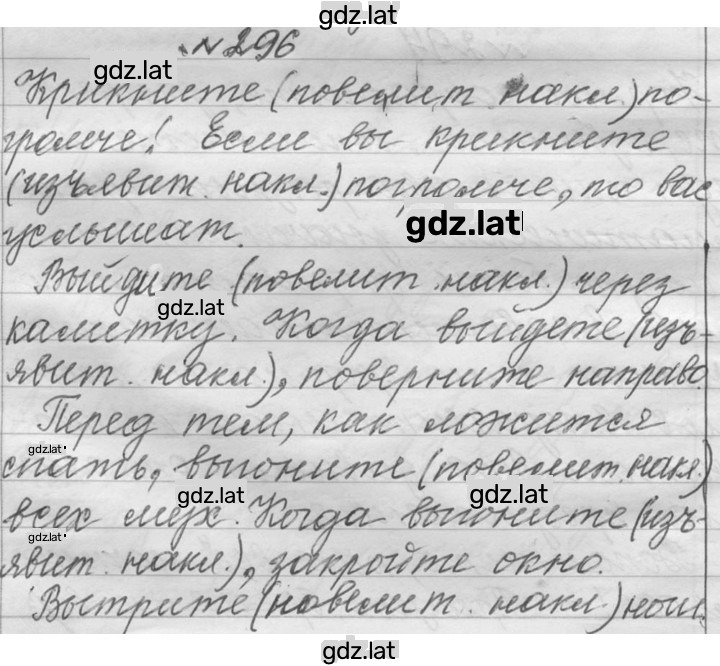 gdz.lat
№ 296
gdz.lat
Крикните (повелит. накл.) по-
громче! Если вы крикните
(изъявит. накл.) погромче, то вас
gdz.lat
услышат.
Выйдите (повелит. накл.) через
gdz.lat
калитку. Когда выйдете (изъ-
явит. накл.), поверните направо
Перед тем, как ложится
gdz.lat
спать, выгоните (повелит. накл.)
gdz.lat gdz.lat
всех мух. Когда выгоните (изъ-
gdz.lat
явит. накл.), закройте окно.
Вытрите (повелит. накл.)
gdz.lat